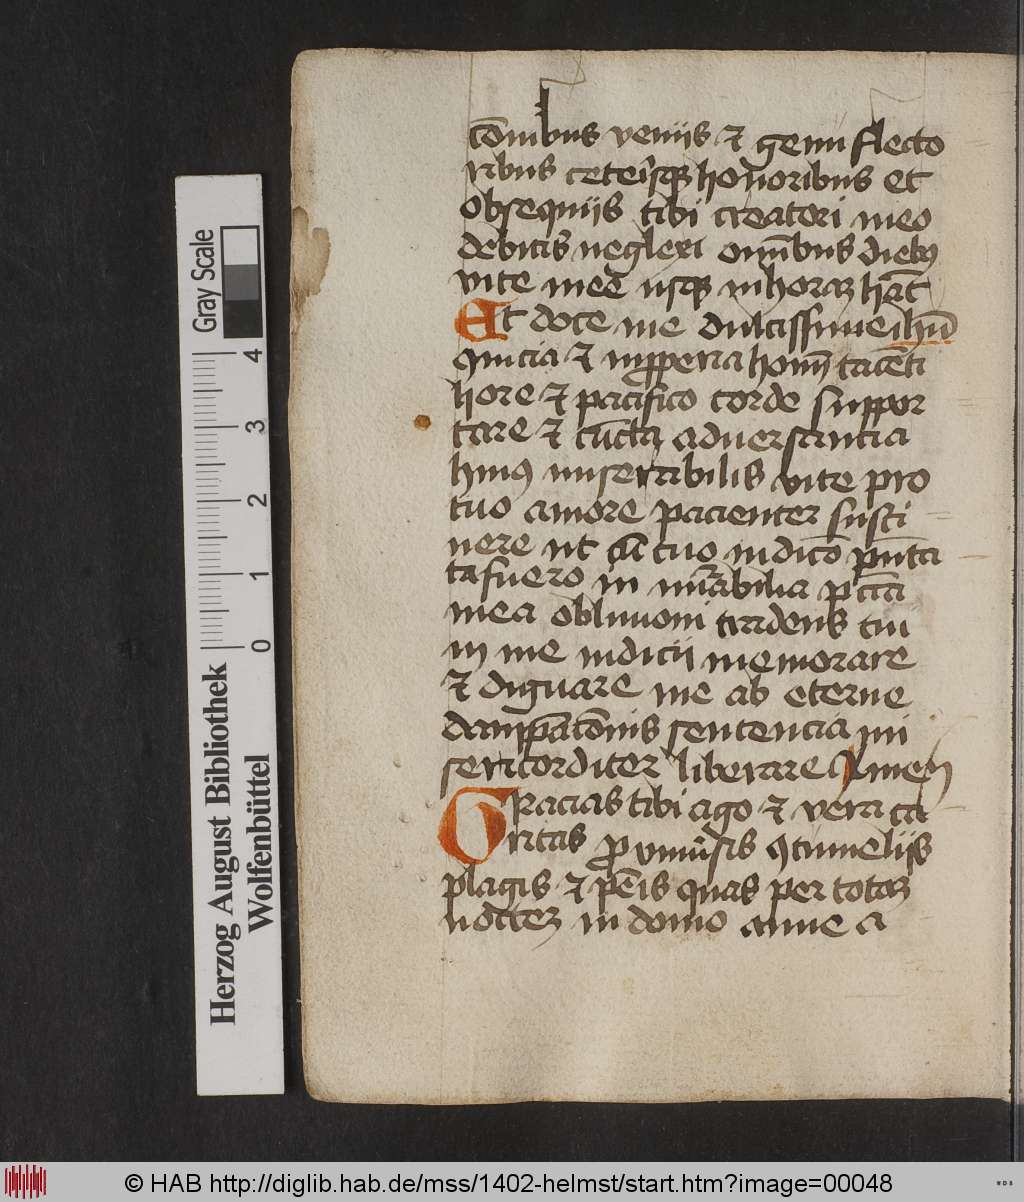 cōnibus veniis et genu flecto
nibus ceterisque honoribus et
obsequiis tibi creatori meo
debitis neglexi omībus diebus
vite mee usque in horam hanc
Et doce me dulcissime ihū
et improperia hominum tacenti
hore et pacifico corde suppor
tare et cūcta adversancia
huius miserabilis vite pro
tuo amore pacienter susti
nere ut cū tuo iudicio pñta
ta fuero in inūabilia pctā
mea oblivioni tradens tui
in me iudicii memorare
et dignare me ab eterne
dampnacōnis sentencia mi
sericorditer liberare Amen
Gracias tibi ago et vera ca
ritas pro universis contumeliis
plagis et penis quas per totam
noctem in domo anne a
Gray Scale
0 1 2 3 4
Herzog August Bibliothek
Wolfenbüttel
© HAB http://diglib.hab.de/mss/1402-helmst/start.htm?image=00048